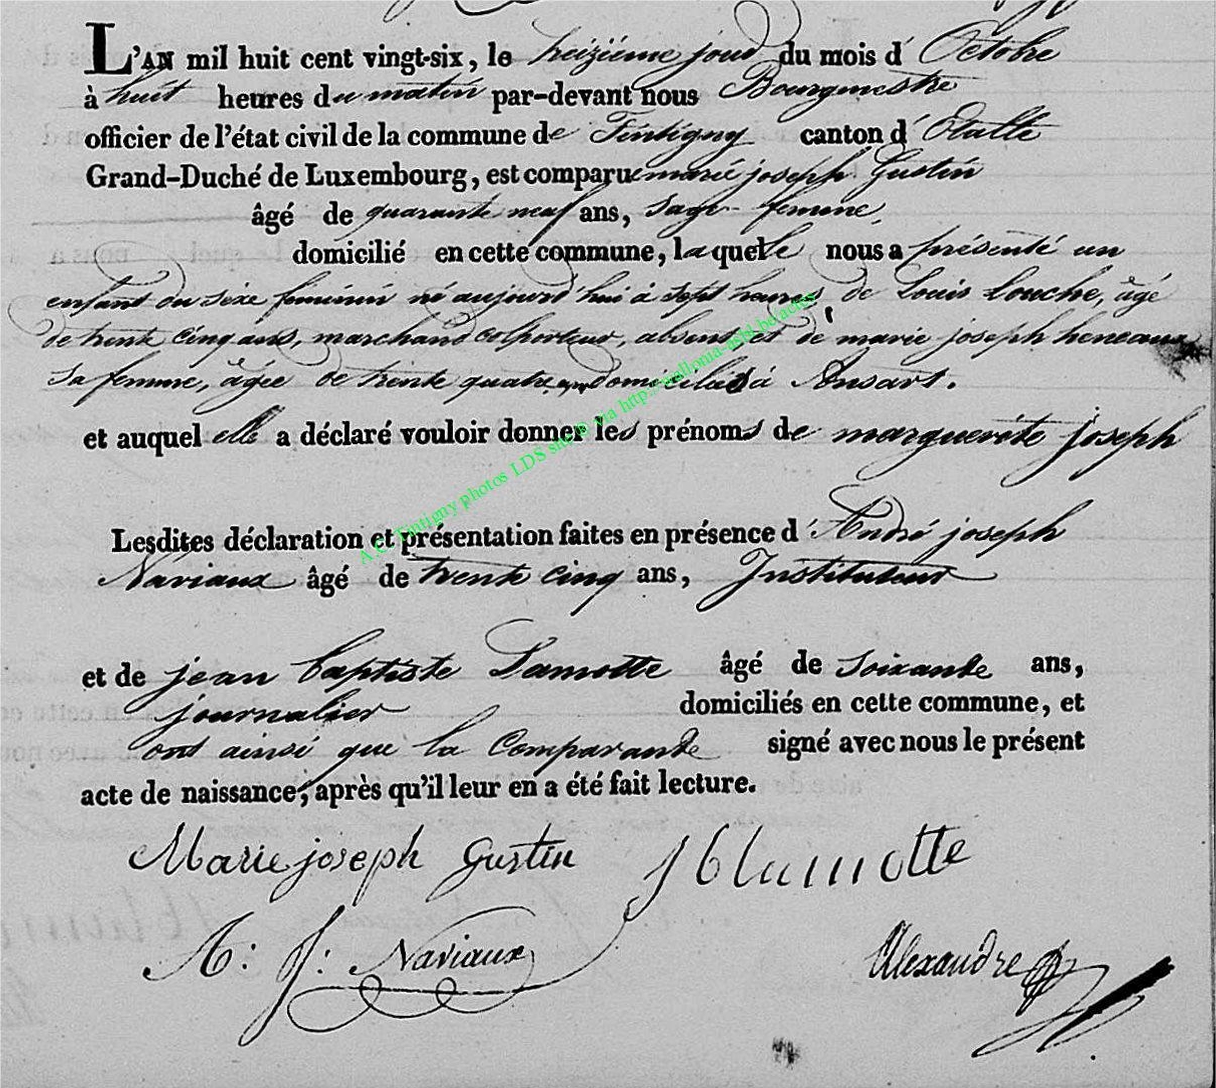 L'AN mil huit cent vingt-six, le treizième jour du mois d'Octobre
à huit heures du matin par-devant nous Bourgmestre
officier de l'état civil de la commune de Tintigny canton d'Etalle
Grand-Duché de Luxembourg, est comparue marie joseph Gustin
âgé de quarante neuf ans, sage-femme,
domicilié en cette commune, laquelle nous a présenté un
enfant du sexe féminin né aujourd'hui à sept heures, de Louis Louche, âgé
de trente cinq ans, marchand colporteur, absent, et de marie joseph heneaux
sa femme, âgée de trente quatre ans domiciliés à Ansart.
et auquel elle a déclaré vouloir donner les prénoms de marguerite joseph
Lesdites déclaration et présentation faites en présence d'André joseph
Naviaux âgé de trente cinq ans, Instituteur
et de jean baptiste Lamotte âgé de soixante ans,
journalier domiciliés en cette commune, et
ont ainsi que la Comparante signé avec nous le présent
acte de naissance, après qu'il leur en a été fait lecture.
Marie joseph Gustin JBlamotte
A: J: Naviaux Alexandre
A.C. Tintigny photos LDS sur via http://wallonia-asbl.be/actes